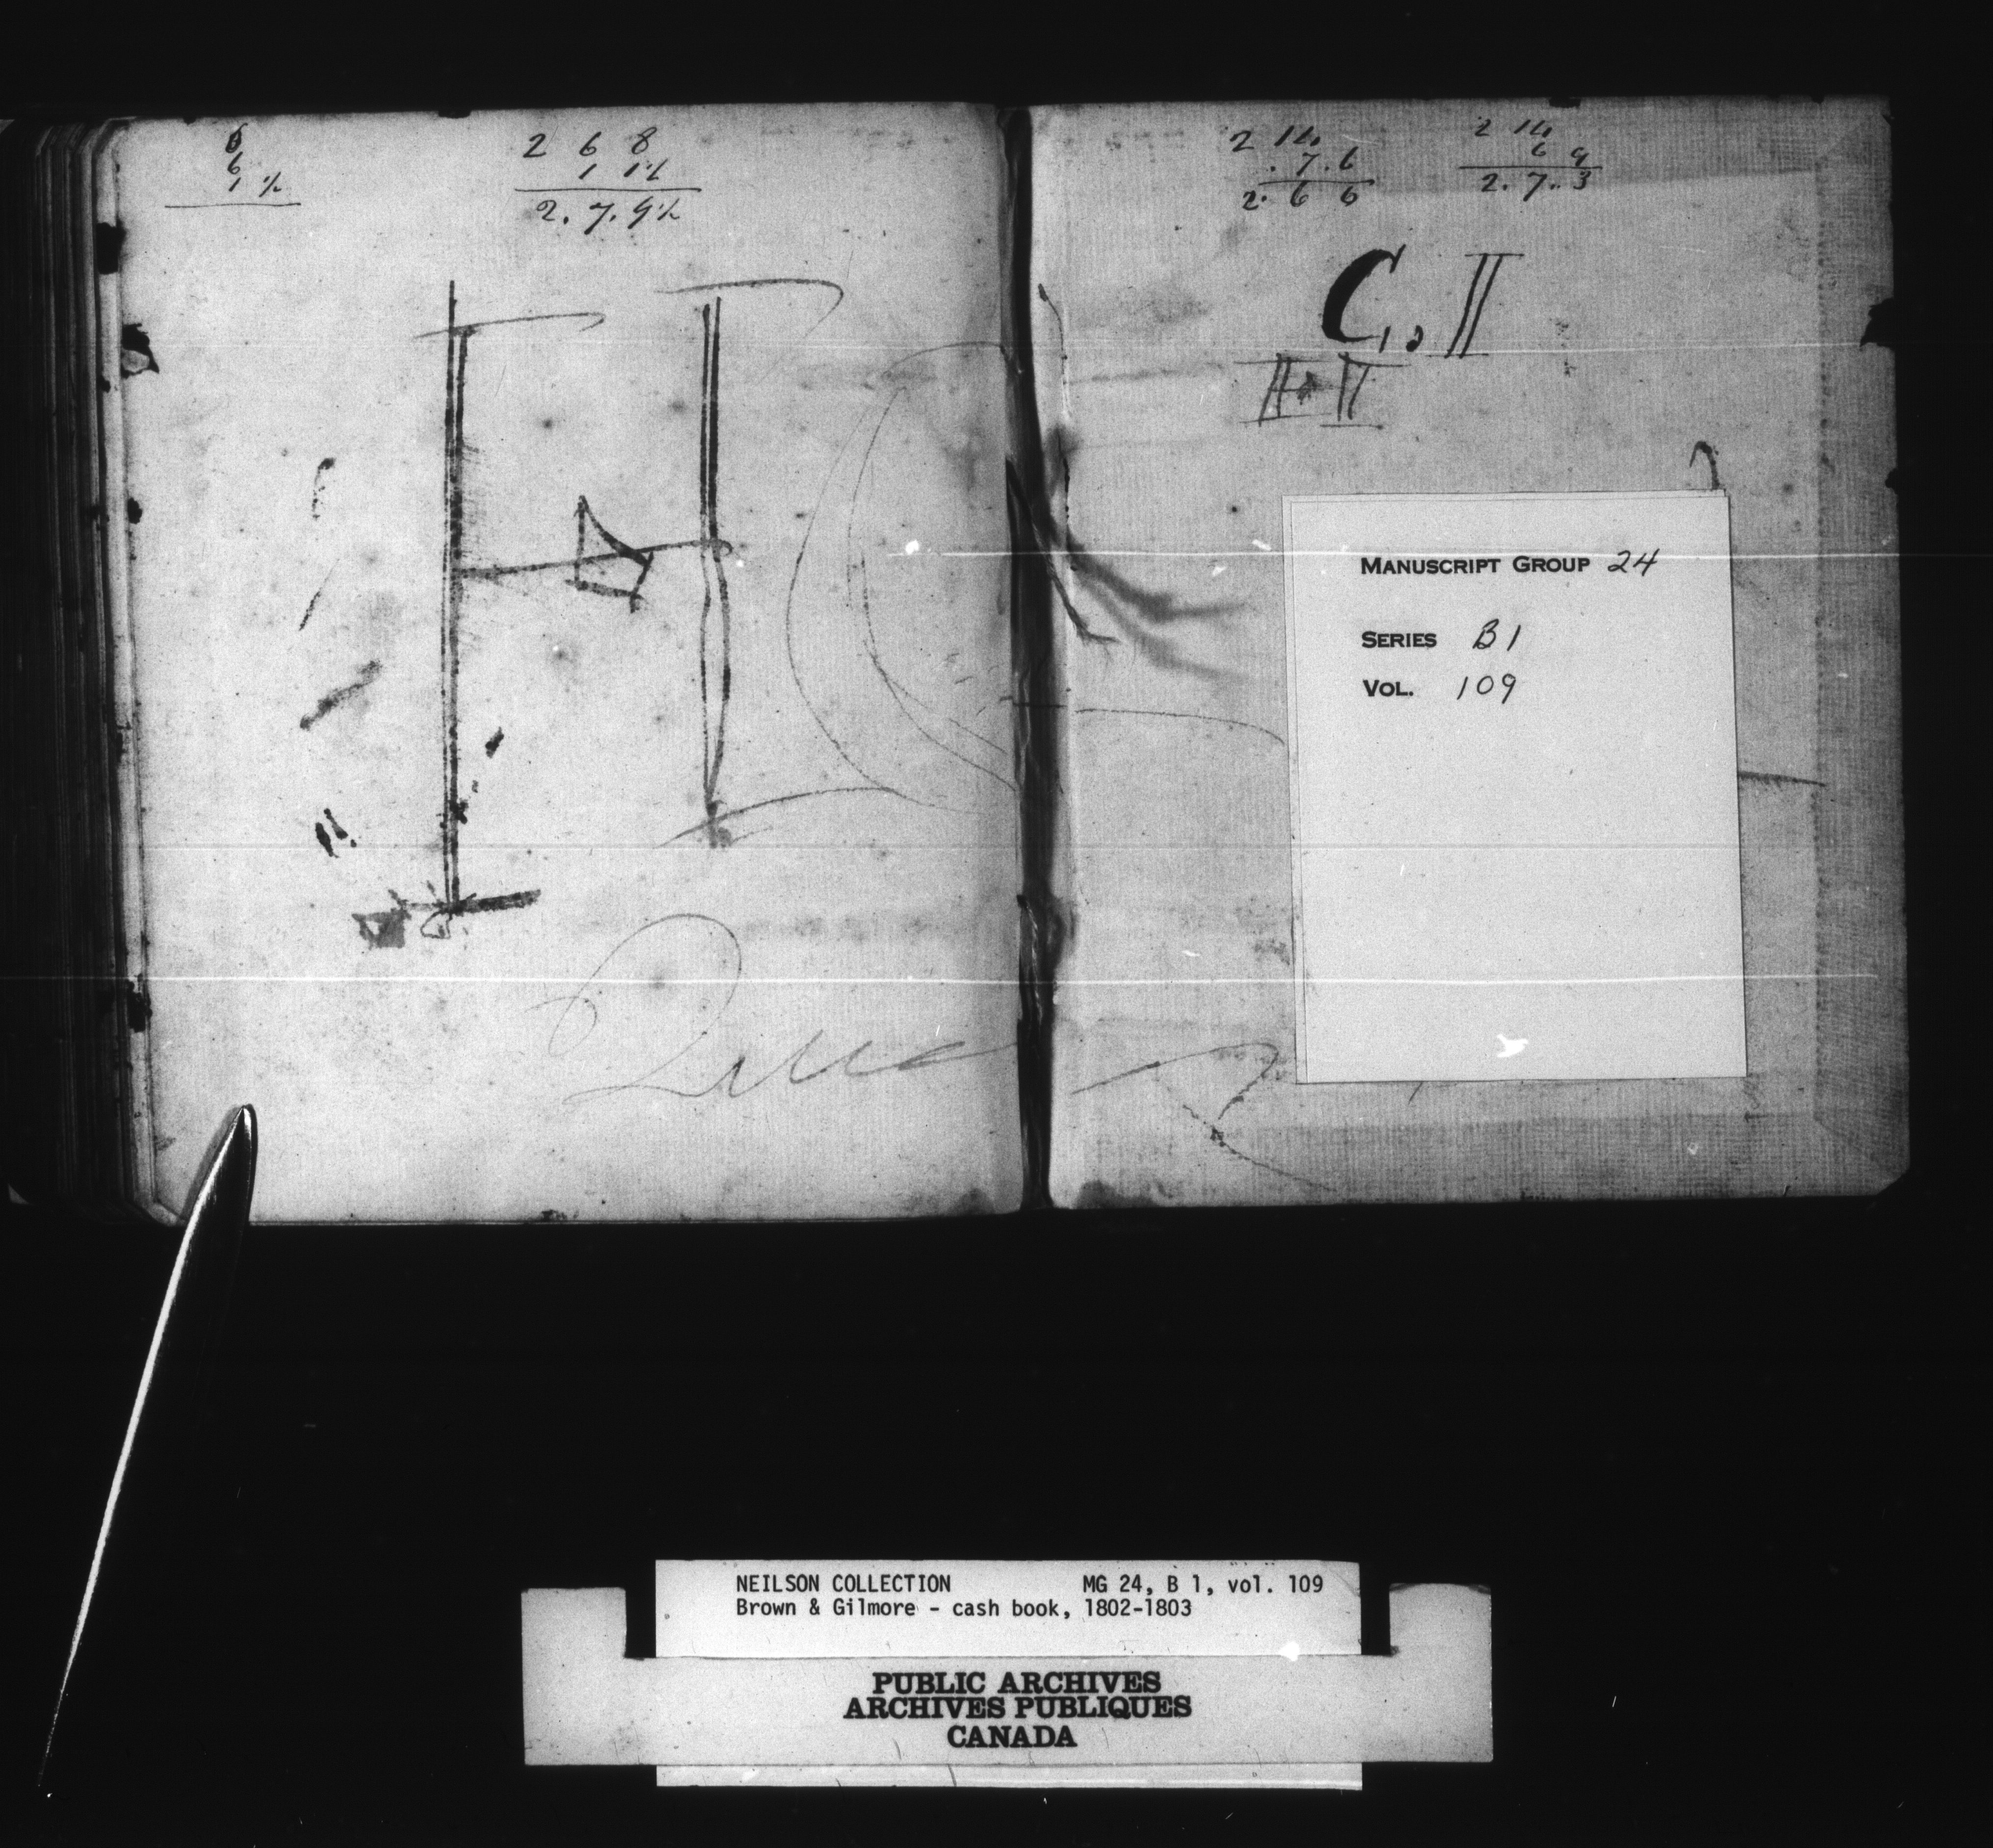 6
6
1 ½
2 6 8
1 1½
2. 7. 9½
2 14
. 7. 6
2. 6 6
2 14
6 9
2. 7.. 3
C. II
MANUSCRIPT GROUP 24
SERIES B 1
VOL. 109
NEILSON COLLECTION MG 24, B 1, vol. 109
Brown & Gilmore - cash book, 1802-1803
PUBLIC ARCHIVES
ARCHIVES PUBLIQUES
CANADA